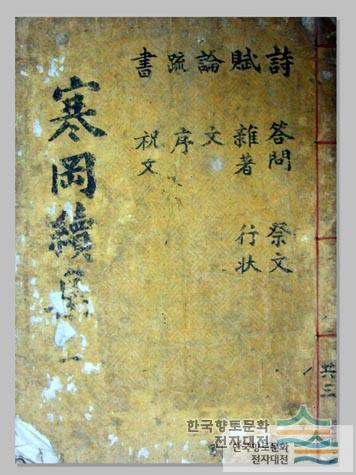 詩 答問 祭文
賦 雜著 行状
論 文
疏 序
書 祝文
寒岡續集
共三
한국향토문화
전자대전
한국향토문화
전자대전